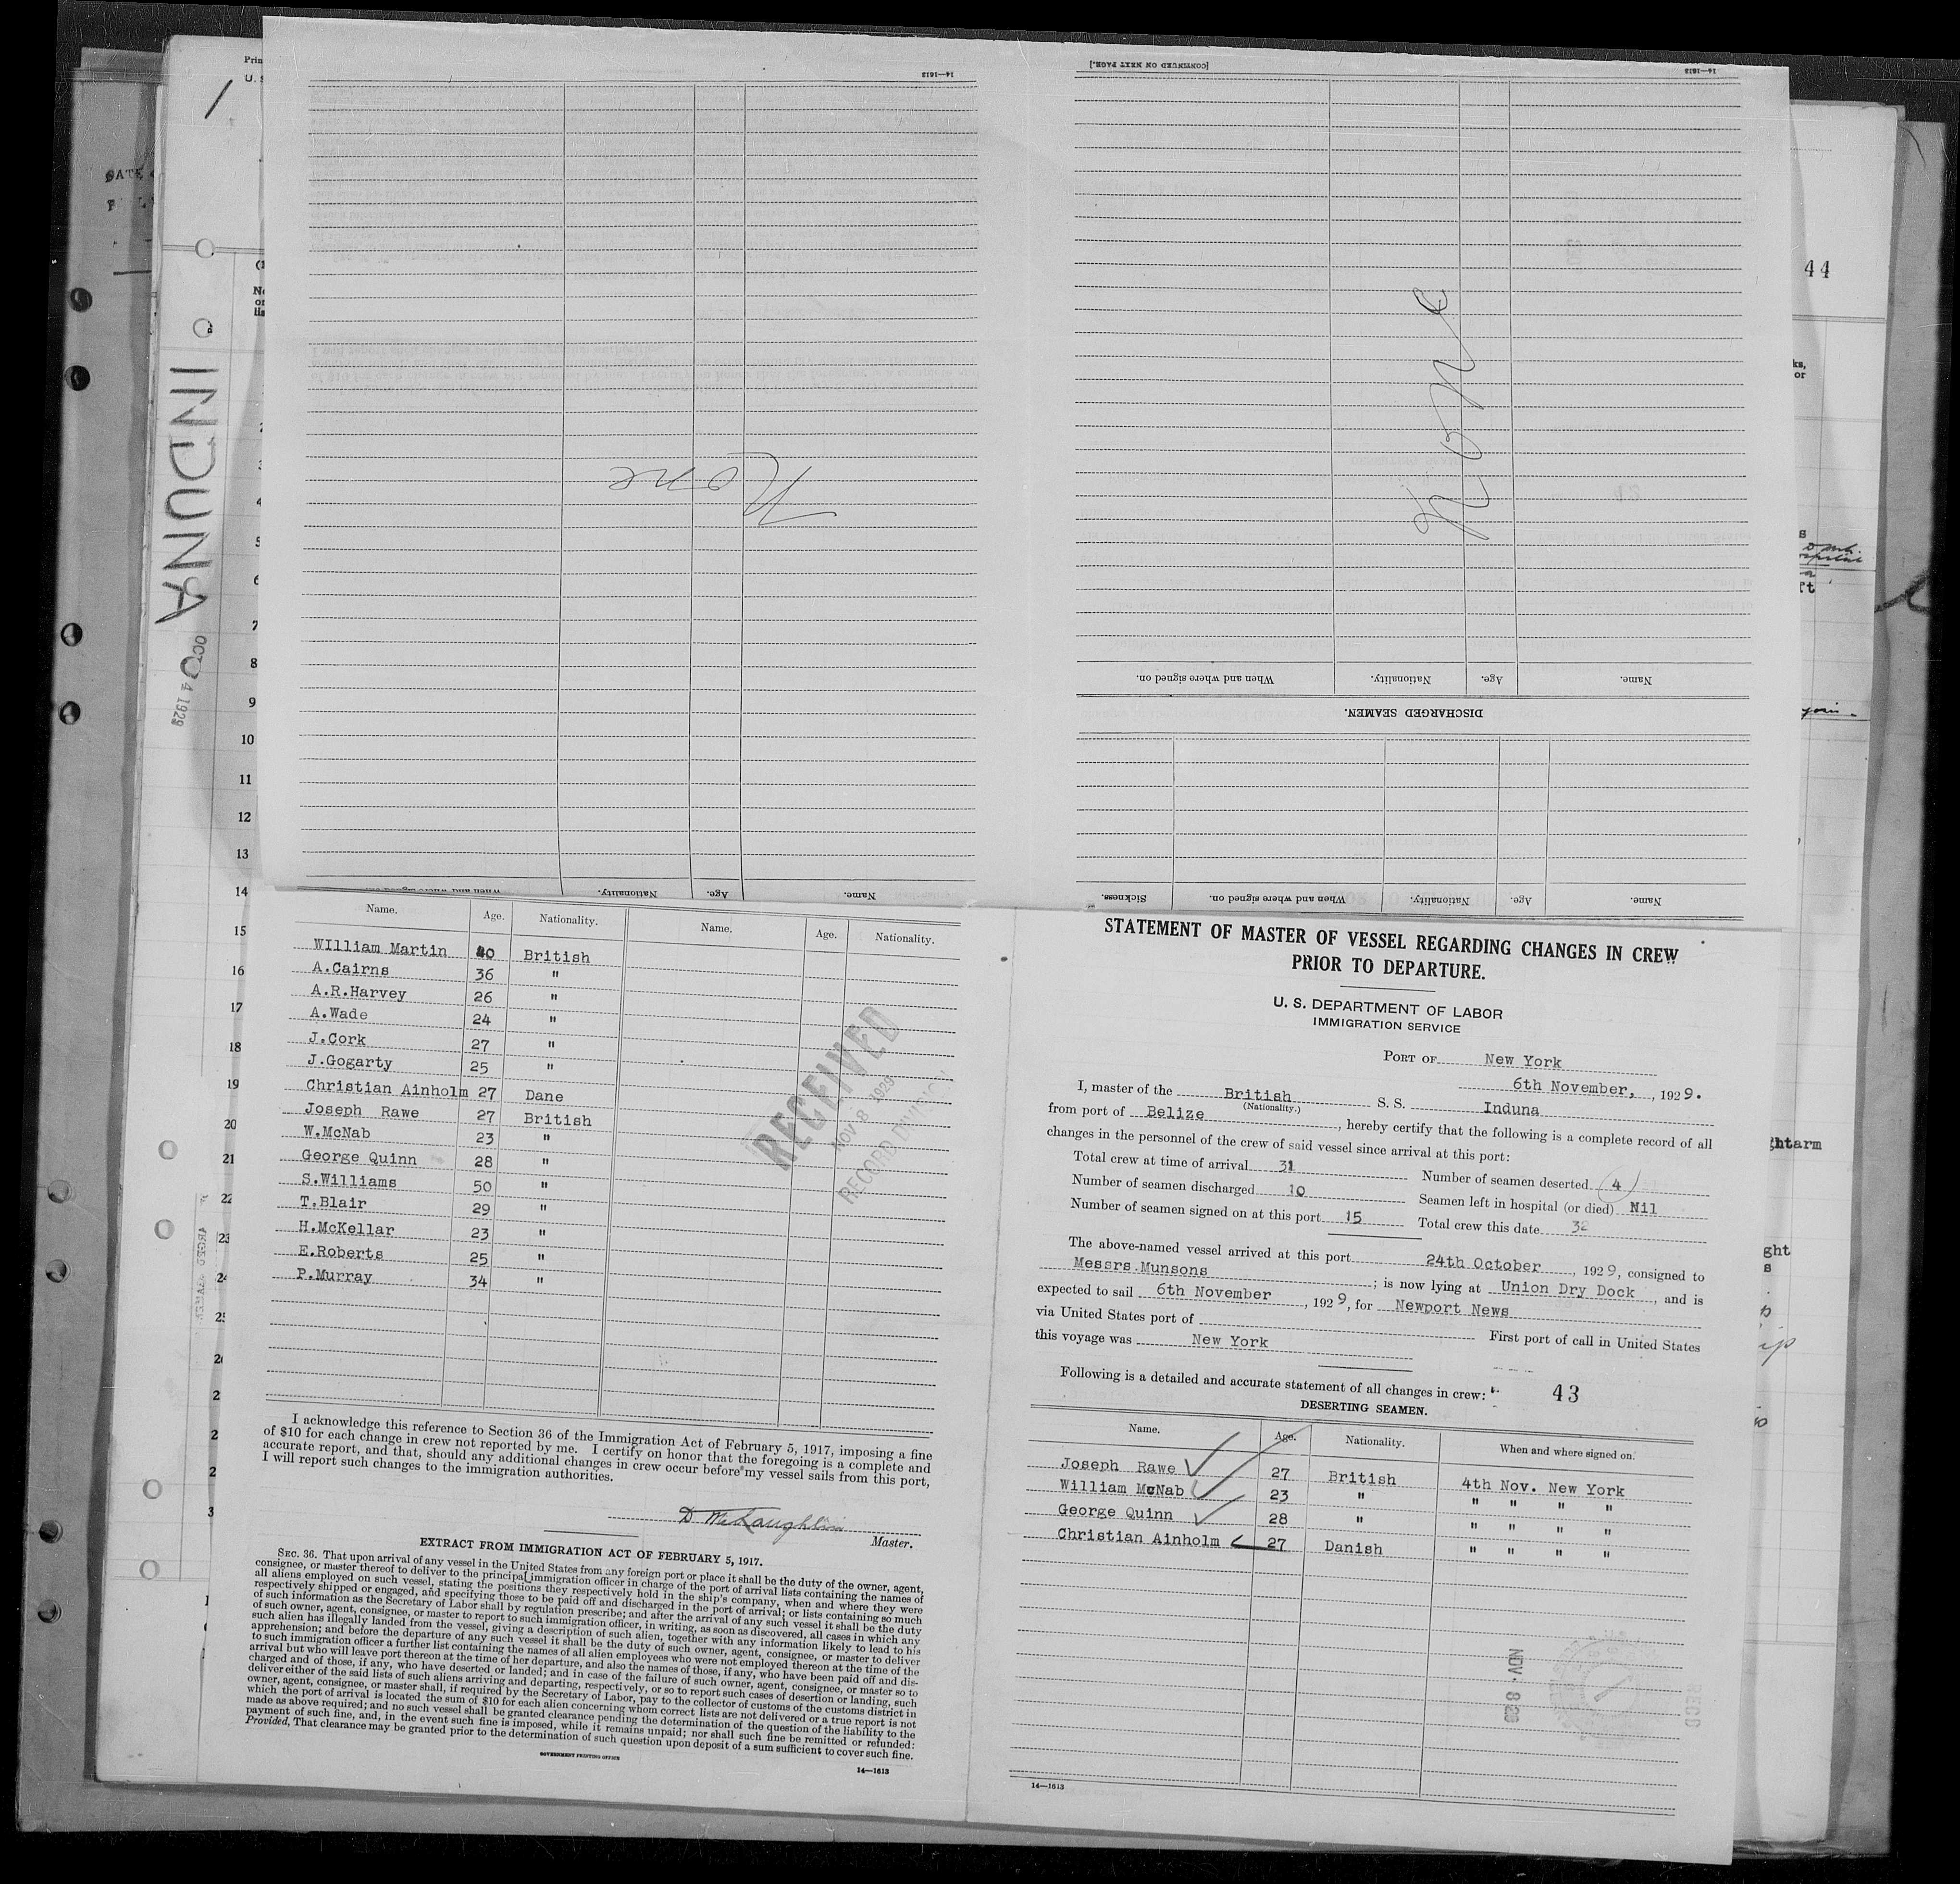 14—1613
[CONTINUED ON NEXT PAGE.]
14—1613
None
None
When and where signed on.
Nationality.
Age.
Name.
DISCHARGED SEAMEN.
Sickness.
When and where signed on.
Nationality.
Age.
Name.
Nationality.
Age.
Name.
INDUNA
44
Name. Age. Nationality. Name. Age. Nationality.
WIlliam Martin 40 British
A.Cairns 36 "
A.R.Harvey 26 "
A.Wade 24 "
J.Cork 27 "
J.Gogarty 25 "
Christian Ainholm 27 Dane
Joseph Rawe 27 British
W.McNab 23 "
George Quinn 28 "
S.Williams 50 "
T.Blair 29 "
H.McKellar 23 "
E.Roberts 25 "
P.Murray 34 "
RECEIVED
NOV 8 1929
RECORD DIVISION
I acknowledge this reference to Section 36 of the Immigration Act of February 5, 1917, imposing a fine
of $10 for each change in crew not reported by me. I certify on honor that the foregoing is a complete and
accurate report, and that, should any additional changes in crew occur before my vessel sails from this port,
I will report such changes to the immigration authorities.
D McLaughlin
Master.
EXTRACT FROM IMMIGRATION ACT OF FEBRUARY 5, 1917.
SEC. 36. That upon arrival of any vessel in the United States from any foreign port or place it shall be the duty of the owner, agent,
consignee, or master thereof to deliver to the principal immigration officer in charge of the port of arrival lists containing the names of
all aliens employed on such vessel, stating the positions they respectively hold in the ship's company, when and where they were
respectively shipped or engaged, and specifying those to be paid off and discharged in the port of arrival; or lists containing so much
of such information as the Secretary of Labor shall by regulation prescribe; and after the arrival of any such vessel it shall be the duty
of such owner, agent, consignee, or master to report to such immigration officer, in writing, as soon as discovered, all cases in which any
such alien has illegally landed from the vessel, giving a description of such alien, together with any information likely to lead to his
apprehension; and before the departure of any such vessel it shall be the duty of such owner, agent, consignee, or master to deliver
to such immigration officer a further list containing the names of all alien employees who were not employed thereon at the time of the
arrival but who will leave port thereon at the time of her departure, and also the names of those, if any, who have been paid off and dis-
charged and of those, if any, who have deserted or landed; and in case of the failure of such owner, agent, consignee, or master so to
deliver either of the said lists of such aliens arriving and departing, respectively, or so to report such cases of desertion or landing, such
owner, agent, consignee, or master shall, if required by the Secretary of Labor, pay to the collector of customs of the customs district in
which the port of arrival is located the sum of $10 for each alien concerning whom correct lists are not delivered or a true report is not
made as above required; and no such vessel shall be granted clearance pending the determination of the question of the liability to the
payment of such fine, and, in the event such fine is imposed, while it remains unpaid; nor shall such fine be remitted or refunded:
Provided, That clearance may be granted prior to the determination of such question upon deposit of a sum sufficient to cover such fine.
GOVERNMENT PRINTING OFFICE
14—1613
STATEMENT OF MASTER OF VESSEL REGARDING CHANGES IN CREW
PRIOR TO DEPARTURE.
U. S. DEPARTMENT OF LABOR
IMMIGRATION SERVICE
PORT OF New York
6th November, , 1929.
I, master of the British S. S. Induna
(Nationality.)
from port of Belize, hereby certify that the following is a complete record of all
changes in the personnel of the crew of said vessel since arrival at this port:
Total crew at time of arrival 31 Number of seamen deserted 4
Number of seamen discharged 10 Seamen left in hospital (or died) Nil
Number of seamen signed on at this port 15 Total crew this date 32
The above-named vessel arrived at this port 24th October, 1929, consigned to
Messrs.Munsons; is now lying at Union Dry Dock, and is
expected to sail 6th November, 1929, for Newport News
via United States port of First port of call in United States
this voyage was New York
Following is a detailed and accurate statement of all changes in crew: 43
DESERTING SEAMEN.
Name. Age. Nationality. When and where signed on.
Joseph Rawe 27 British 4th Nov. New York
William McNab 23 " " " " "
George Quinn 28 " " " " "
Christian Ainholm 27 Danish " " " "
14—1613